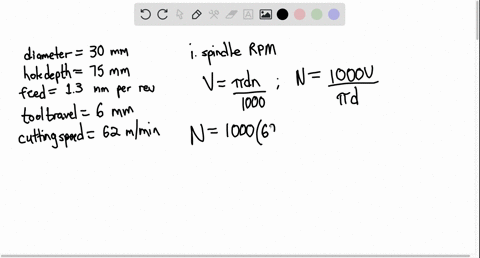 diameter = 30 mm
hole depth = 75 mm
feed = 1.3 mm per rev
tool travel = 6 mm
cutting speed = 62 m/min
i. spindle RPM
V = πdn / 1000 ; N = 1000V / πd
N = 1000(6